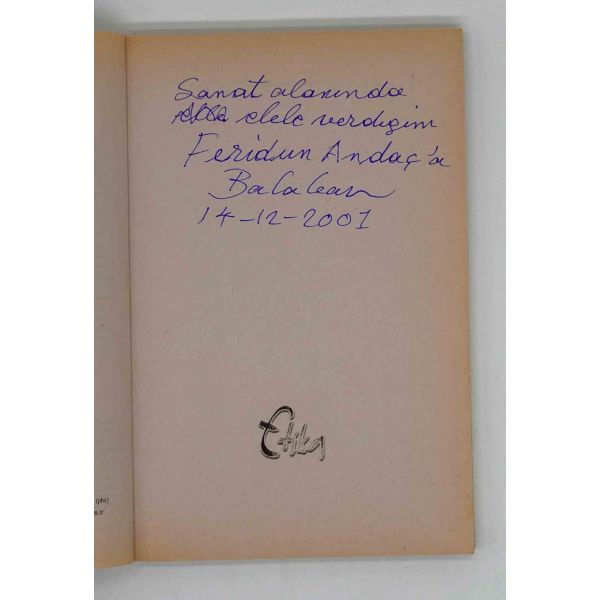 Sanat alanında
elele verdiğim
Feridun Andaç'a
Balaban
14-12-2001
Etika
(pbx)